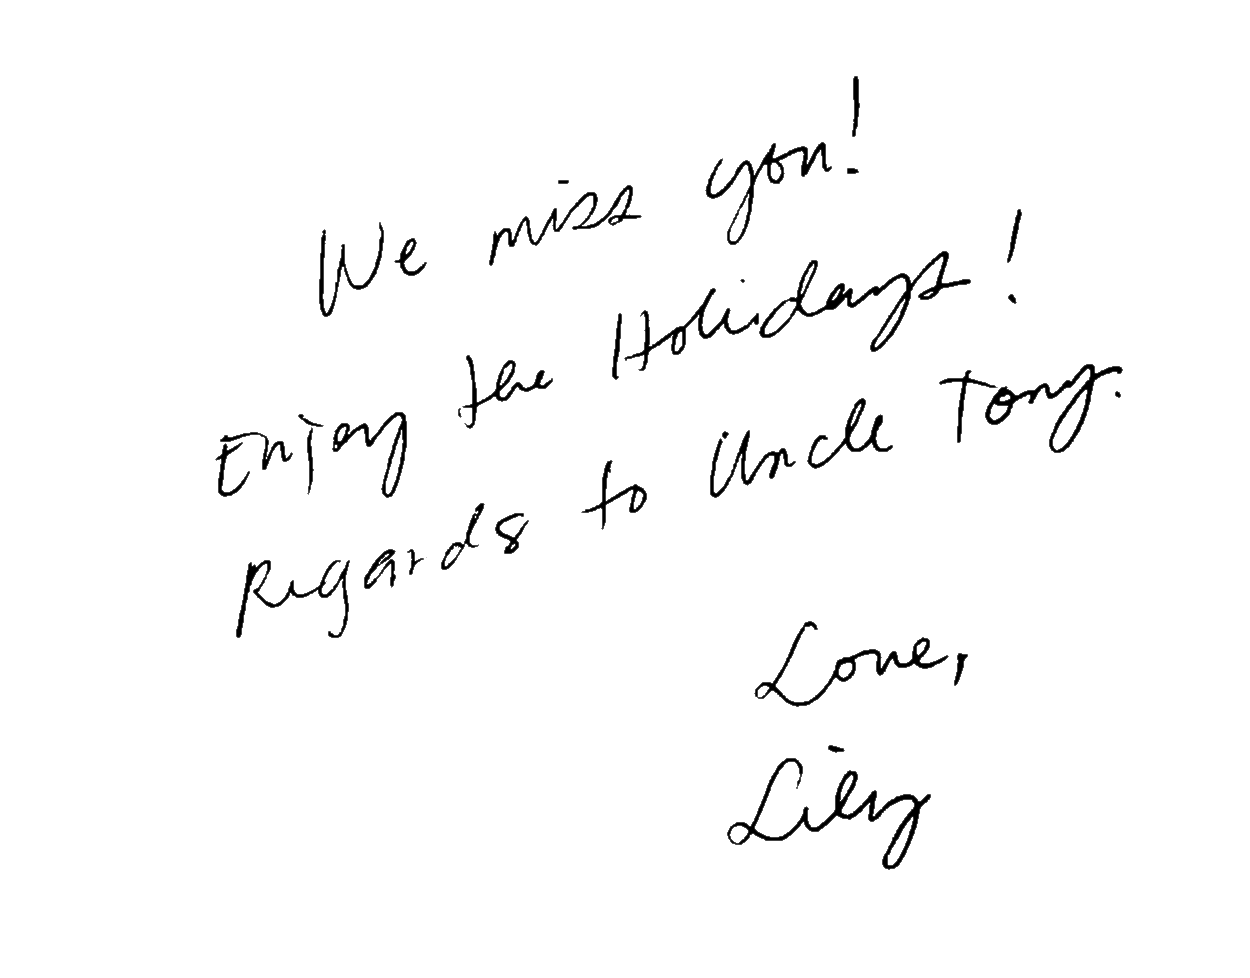 We miss you!
Enjoy the Holidays!
Regards to Uncle Tony.
Love,
Lily